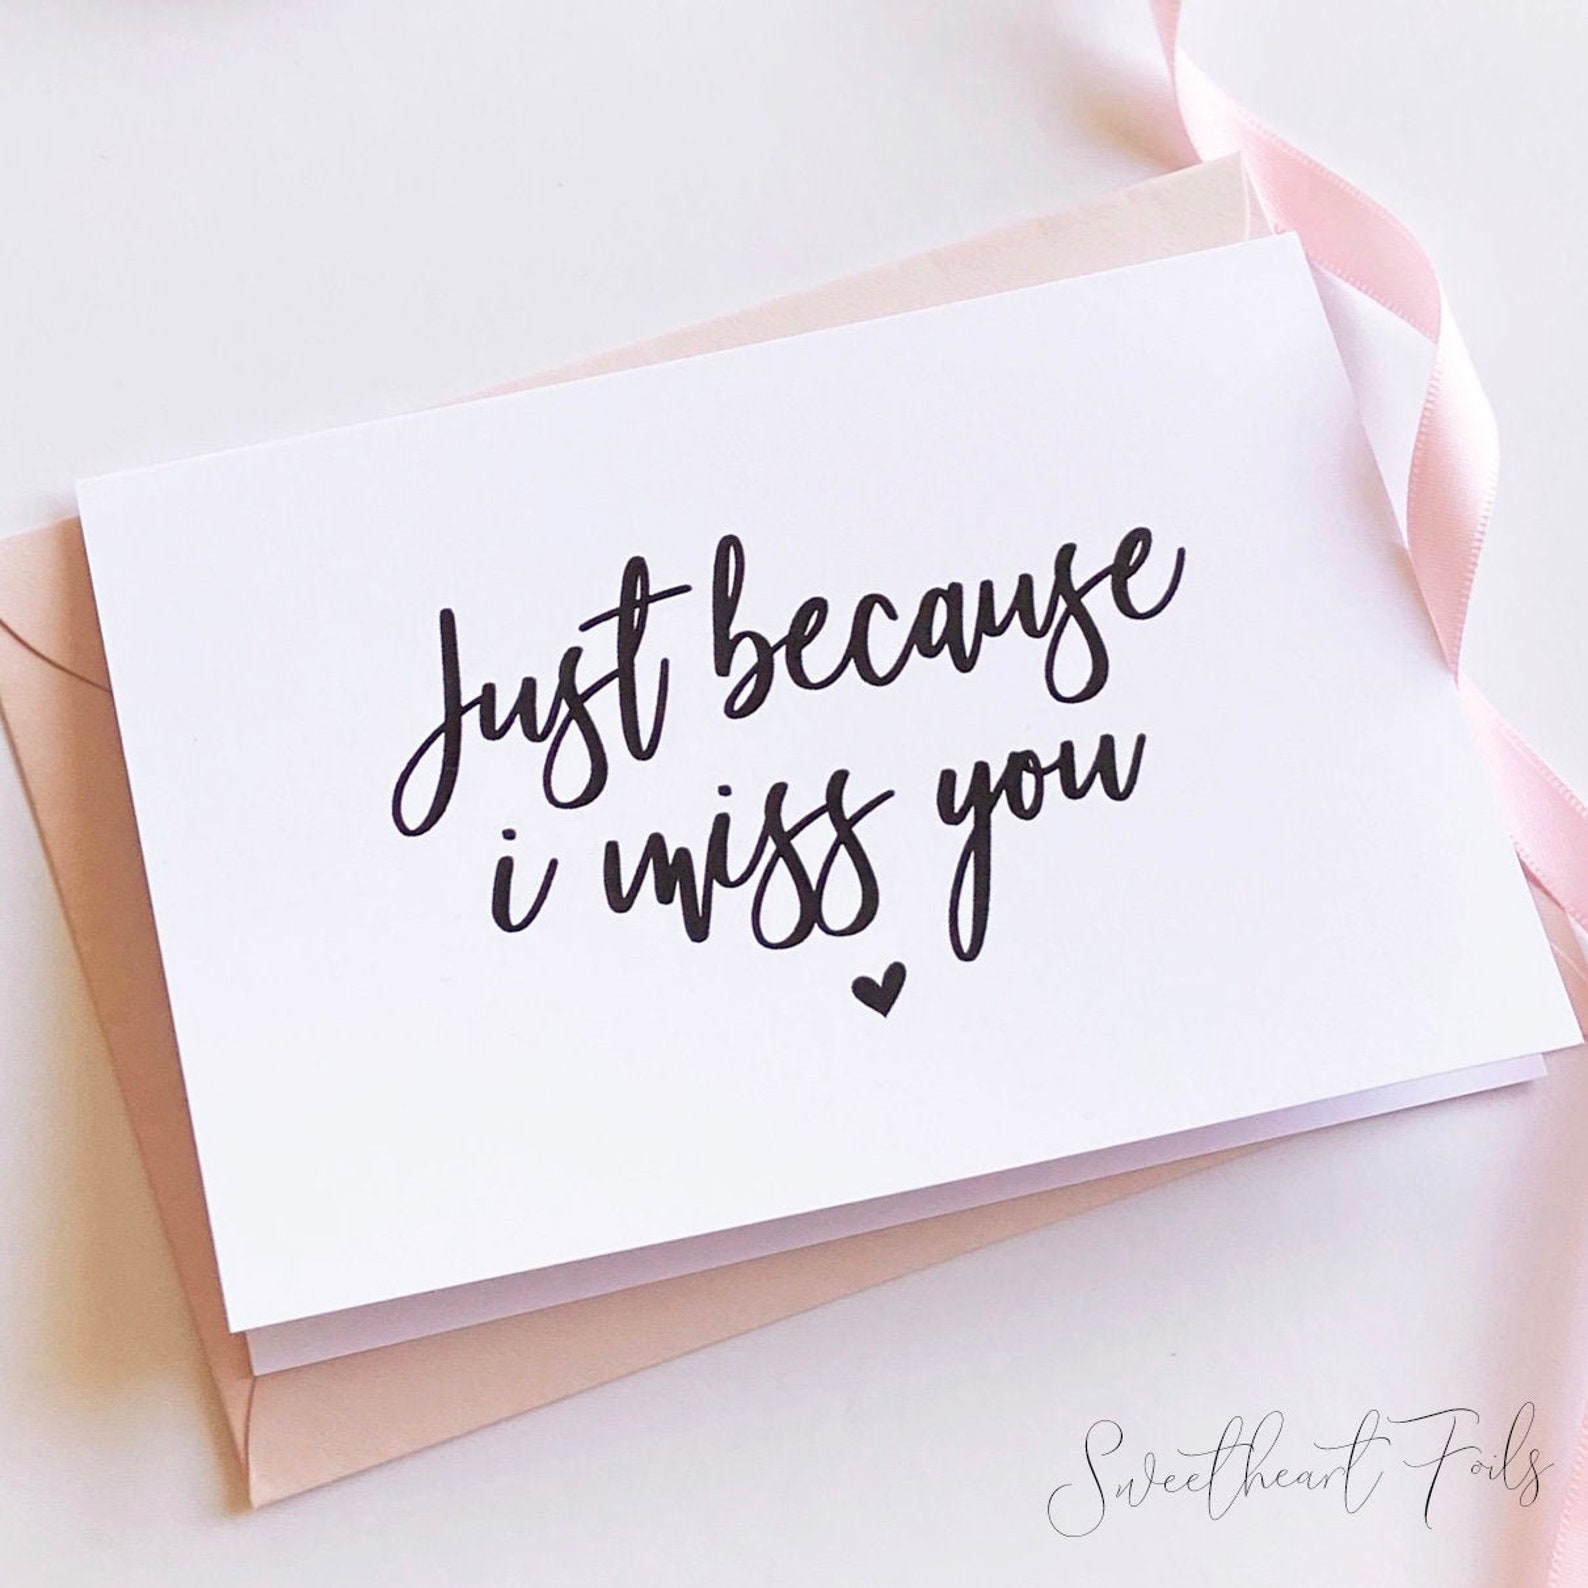 Just because
i miss you
Sweetheart Foils